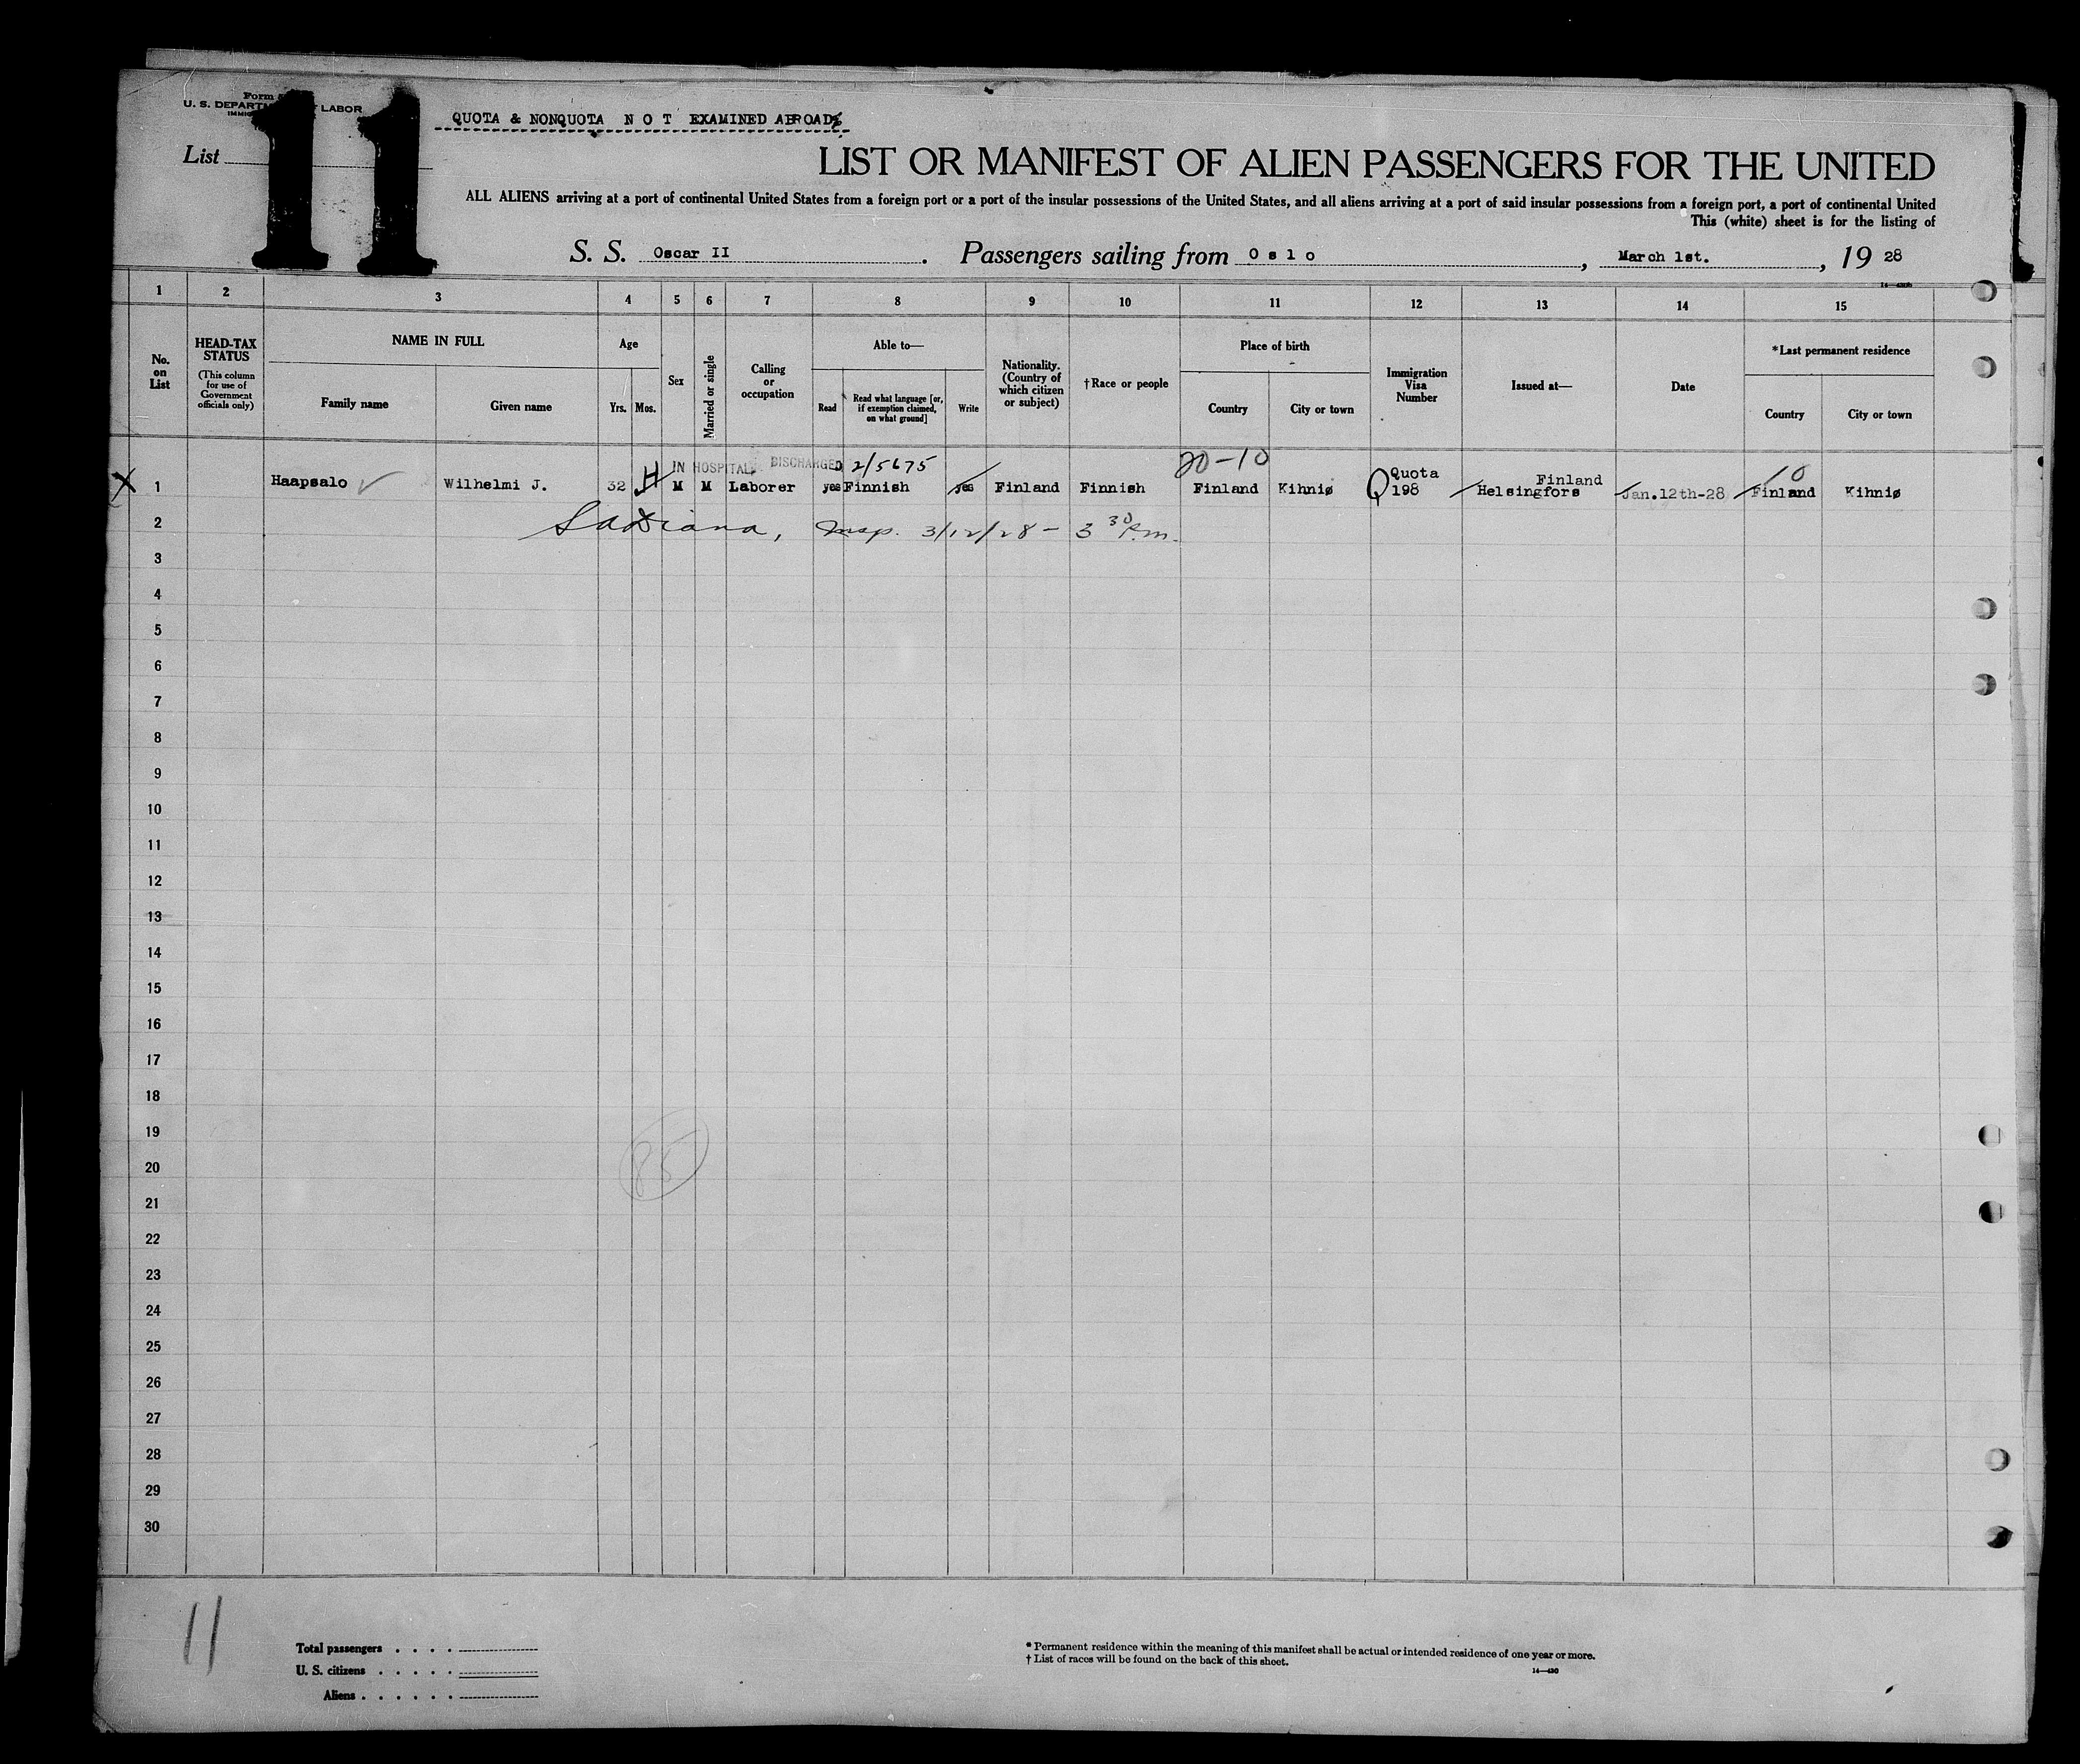 Form
U. S. DEPARTM LABOR
IMMIG
11
QUOTA & NONQUOTA N O T EXAMINED ABROAD
List
LIST OR MANIFEST OF ALIEN PASSENGERS FOR THE UNITED
ALL ALIENS arriving at a port of continental United States from a foreign port or a port of the insular possessions of the United States, and all aliens arriving at a port of said insular possessions from a foreign port, a port of continental United
This (white) sheet is for the listing of
S. S. Oscar II . Passengers sailing from O s l o , March 1st. , 19 28
1 2 3 4 5 6 7 8 9 10 11 12 13 14 15
No. on List
HEAD-TAX STATUS
(This column for use of Government officials only)
NAME IN FULL
Family name Given name
Age
Yrs. Mos.
Sex
Married or single
Calling or occupation
Able to—
Read Read what language [or, if exemption claimed, on what ground] Write
Nationality. (Country of which citizen or subject)
†Race or people
Place of birth
Country City or town
Immigration Visa Number
Issued at—
Date
*Last permanent residence
Country City or town
IN HOSPITAL DISCHARGED 2/5675 20-10
X 1 Haapsalo Wilhelmi J. 32 H M M Laborer yes Finnish yes Finland Finnish Finland Kihniø Q Quota 198 Helsingfors Finland Jan.12th-28 10 Finland Kihniø
2 Insp. 3/12/28 - 3 30 P.m.
3
4
5
6
7
8
9
10
11
12
13
14
15
16
17
18
19
20
21
22
23
24
25
26
27
28
29
30
85
11
Total passengers
U. S. citizens
Aliens
* Permanent residence within the meaning of this manifest shall be actual or intended residence of one year or more.
† List of races will be found on the back of this sheet.
14—430